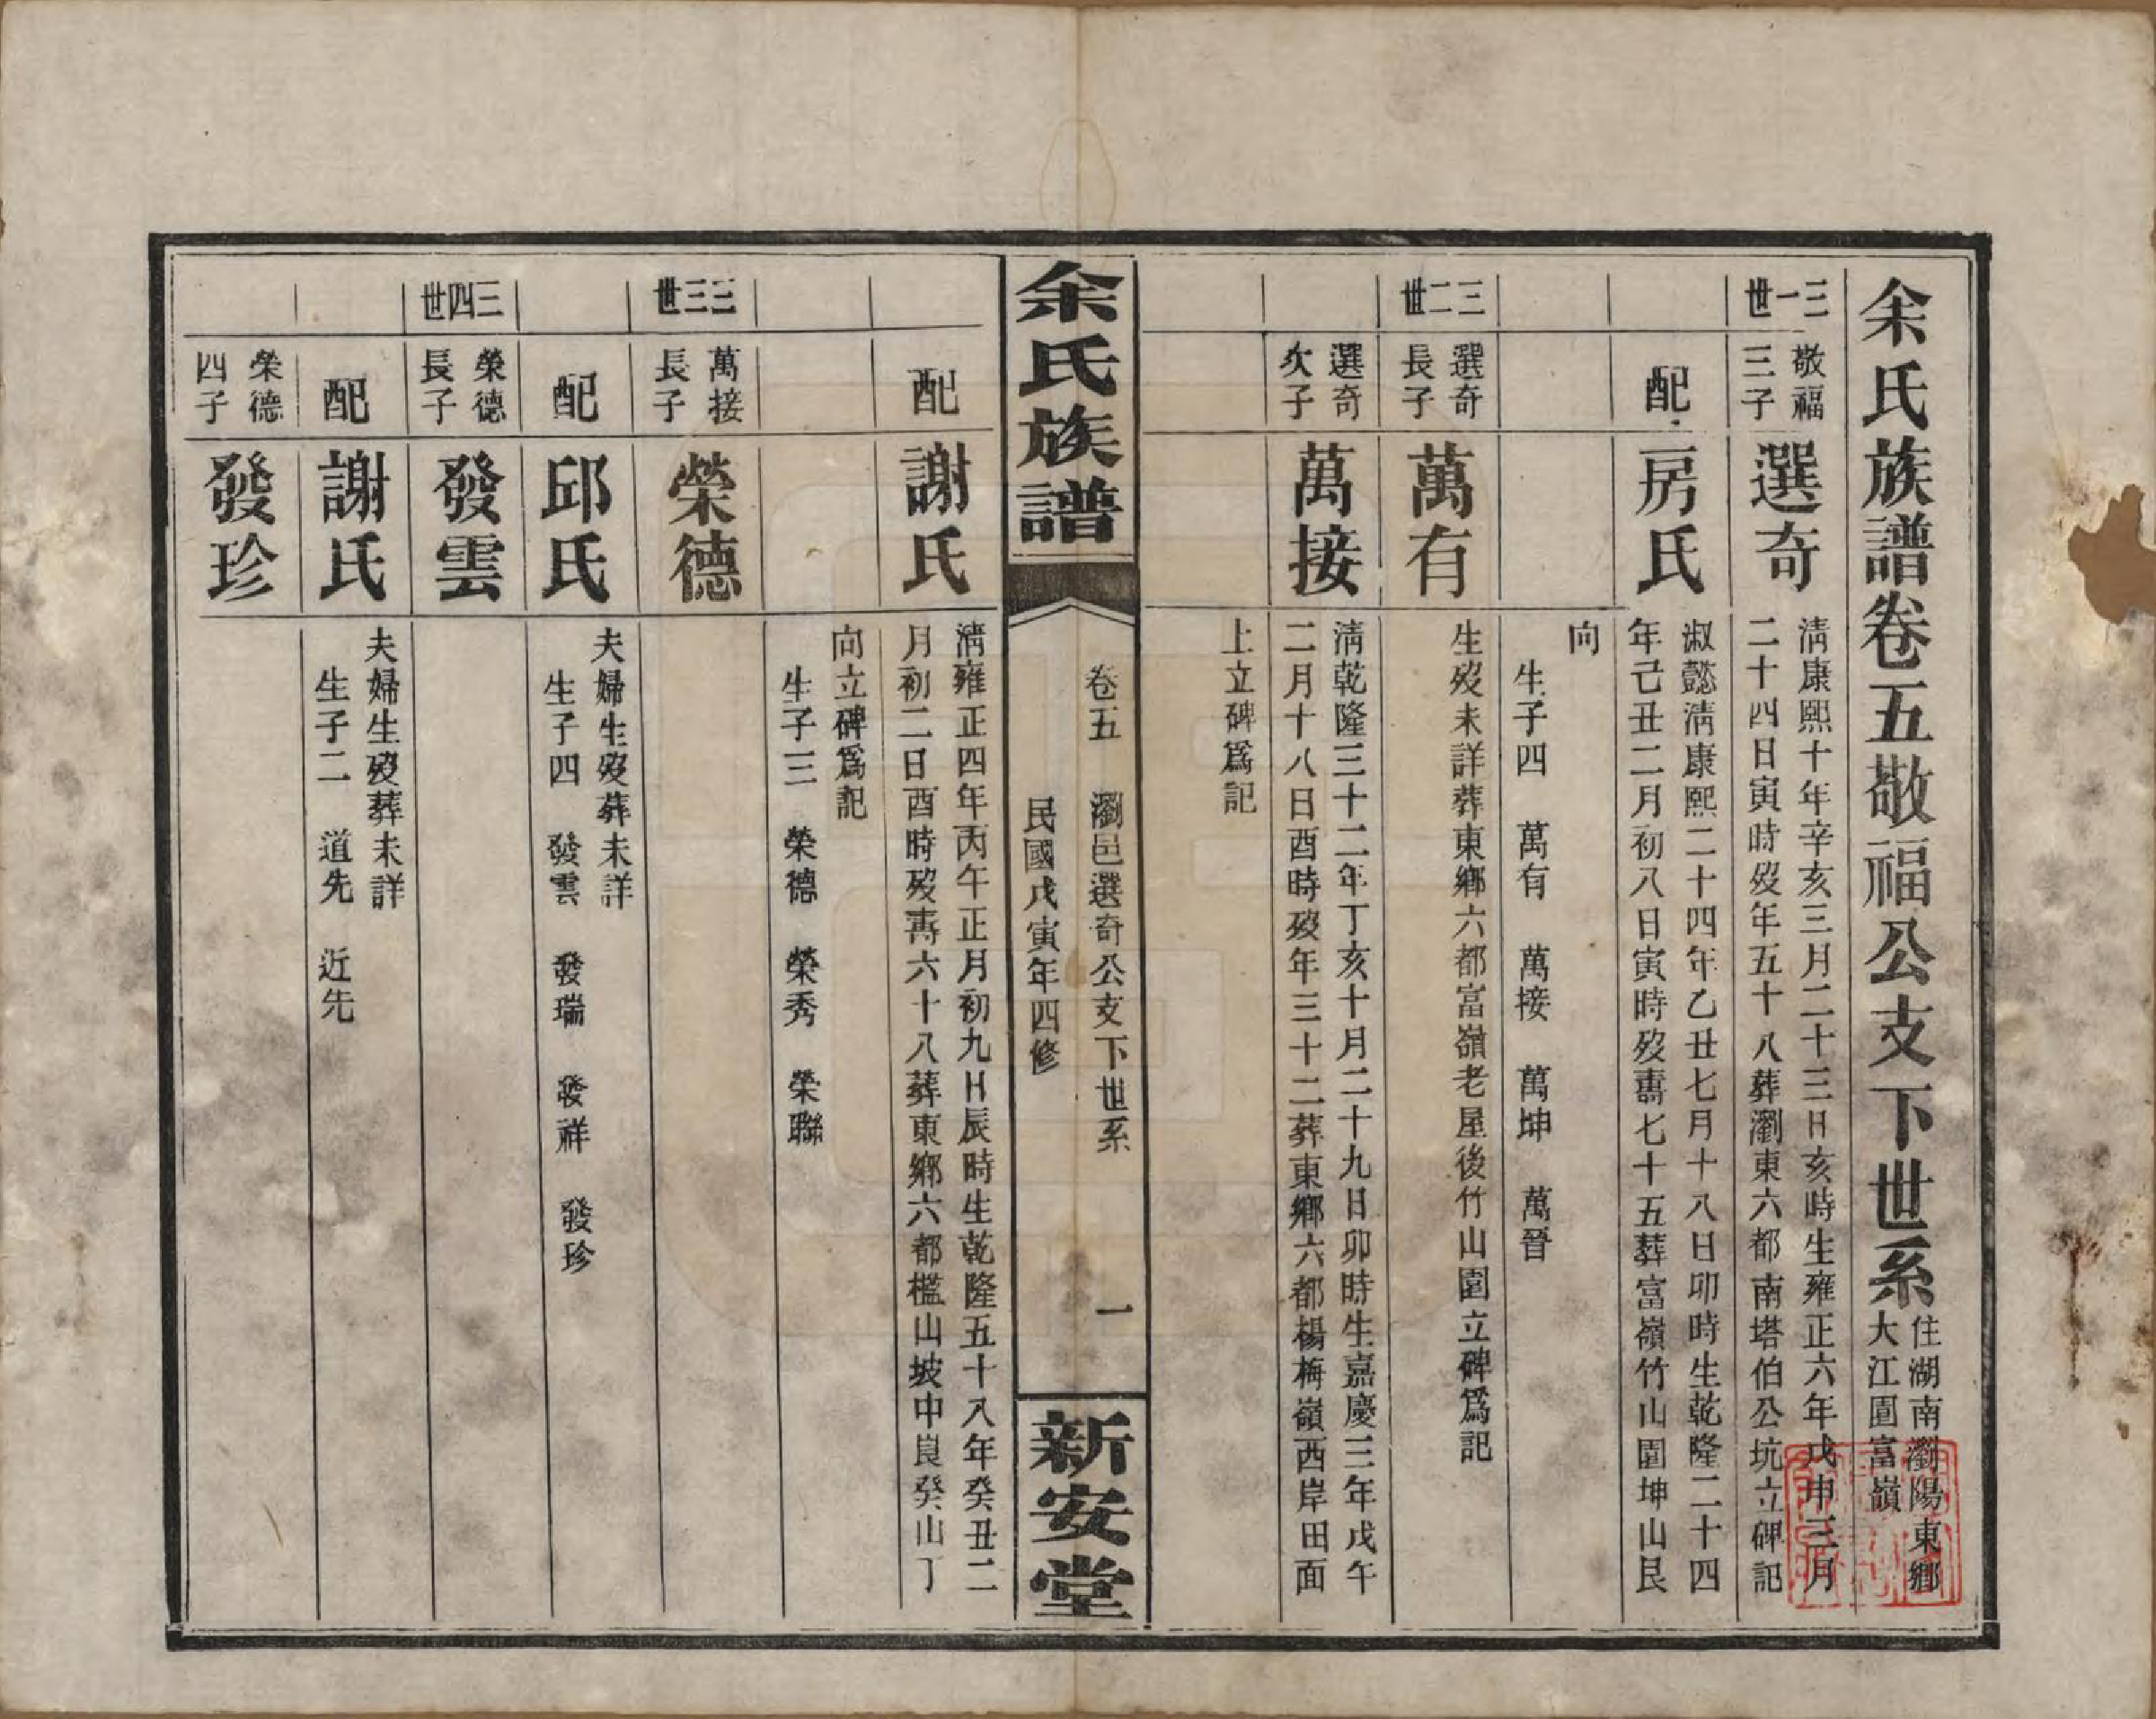 余氏族譜卷五敬福公支下世系
住湖南瀏陽東鄉
大江圍富嶺
三一世
敬福
三子
選奇
淸康熙十年辛亥三月二十三日亥時生雍正六年戊申三月
二十四日寅時歿年五十八葬瀏東六都南塔伯公坑立碑記
配
房氏
淑懿淸康熙二十四年乙丑七月十八日卯時生乾隆二十四
年己丑二月初八日寅時歿壽七十五葬富嶺竹山園坤山艮
向
生子四 萬有 萬接 萬坤 萬晉
三二世
選奇
長子
萬有
生歿未詳葬東鄉六都富嶺老屋後竹山園立碑爲記
選奇
次子
萬接
淸乾隆三十二年丁亥十月二十九日卯時生嘉慶三年戊午
二月十八日酉時歿年三十二葬東鄉六都楊梅嶺西岸田面
上立碑爲記
余氏族譜
卷五 瀏邑選奇公支下世系 一
民國戊寅年四修
新安堂
配
謝氏
淸雍正四年丙午正月初九日辰時生乾隆五十八年癸丑二
月初二日酉時歿壽六十八葬東鄉六都檻山坡中崀癸山丁
向立碑爲記
生子三 榮德 榮秀 榮聯
三三世
萬接
長子
榮德
配
邱氏
夫婦生歿葬未詳
生子四 發雲 發瑞 發祥 發珍
三四世
榮德
長子
發雲
配
謝氏
夫婦生歿葬未詳
生子二 道先 近先
榮德
四子
發珍